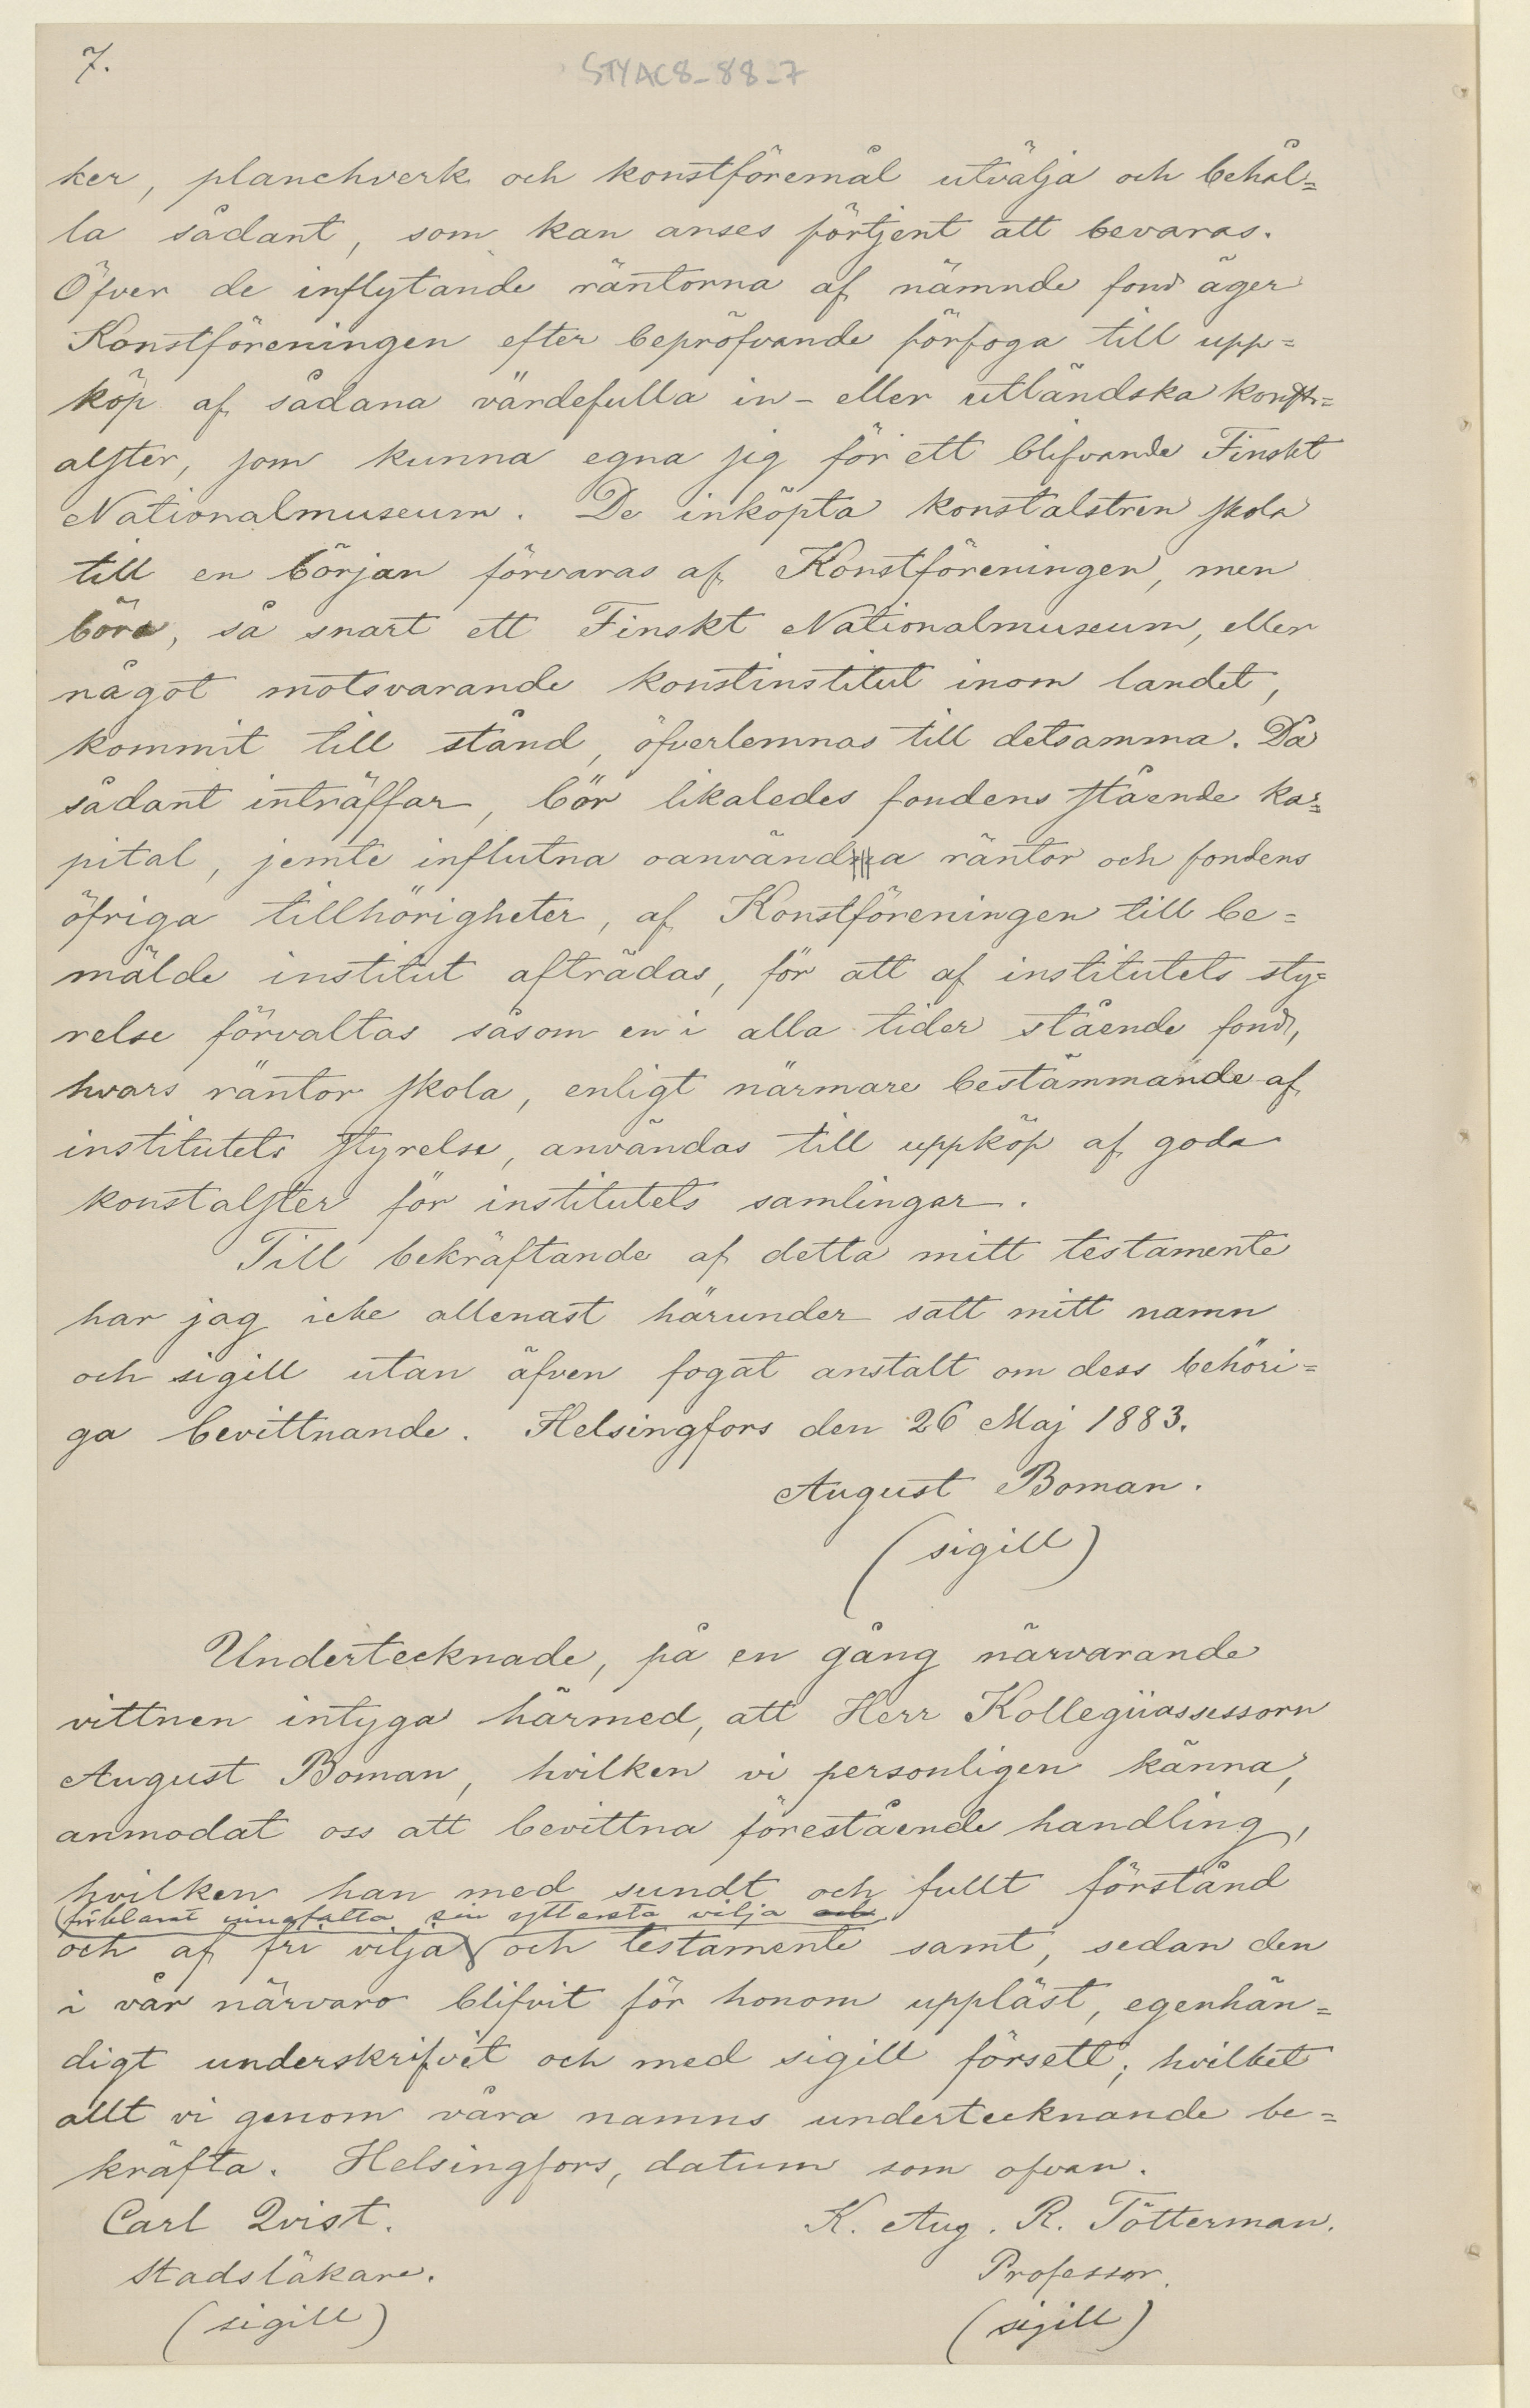 7.
STYAC8-88-7
ker, planchverk och konstföremål utvälja och behål=
la sådant, som kan anses förtjent att bevaras.
Öfver de inflytande räntorna af nämnde fond äger
Konstföreningen efter bepröfvande förfoga till upp=
köp af sådana värdefulla in- eller utländska konst=
alster, som kunna egna sig för ett blifvande Finskt
Nationalmuseum. De inköpta konstalstren skola
till en början förvaras af Konstföreningen, men
böra, så snart ett Finskt Nationalmuseum, eller
något motsvarande konstinstitut inom landet,
kommit till stånd, öfverlemnas till detsamma. Då
sådant inträffar, bör likaledes fondens stående ka=
pital, jemte influtna oanvända räntor och fondens
öfriga tillhörigheter, af Konstföreningen till be=
mälde institut afträdas, för att af institutets sty=
relse förvaltas såsom en i alla tider stående fond,
hvars räntor skola, enligt närmare bestämmande af
institutets styrelse, användas till uppköp af goda
konstalster för institutets samlingar.
Till bekräftande af detta mitt testamente
har jag icke allenast härunder satt mitt namn
och sigill utan äfven fogat anstalt om dess behöri=
ga bevittnande. Helsingfors den 26 Maj 1883.
August Boman.
(sigill)
Undertecknade, på en gång närvarande
vittnen intyga härmed, att Herr Kollegiiassessorn
August Boman, hvilken vi personligen känna,
anmodat oss att bevittna förestående handling,
hvilken han med sundt och fullt förstånd
förklarat innefatta sin yttersta vilja och
och af fri vilja och testamente samt, sedan den
i vår närvaro blifvit för honom uppläst, egenhän=
digt underskrifvit och med sigill försett; hvilket
allt vi genom våra namns undertecknande be=
kräfta. Helsingfors, datum som ofvan.
Carl Qvist. K. Aug. R. Tötterman.
Stadsläkare. Professor.
(sigill) (sigill)